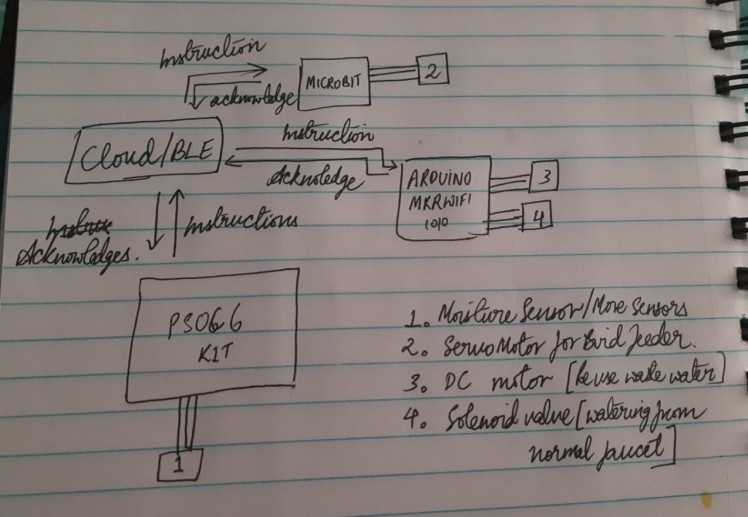 Instruction
acknowledge
MICROBIT
2
Cloud/BLE
Instruction
Acknoledge
ARDUINO
MKRWIFI
1010
3
4
Acknowledges.
Instructions
PSOC6
KIT
1
1. Moisture Sensor/More Sensors
2. Servo Motor for Bird feeder.
3. DC motor [Reuse water]
4. Solenoid valve [watering from
normal faucet]